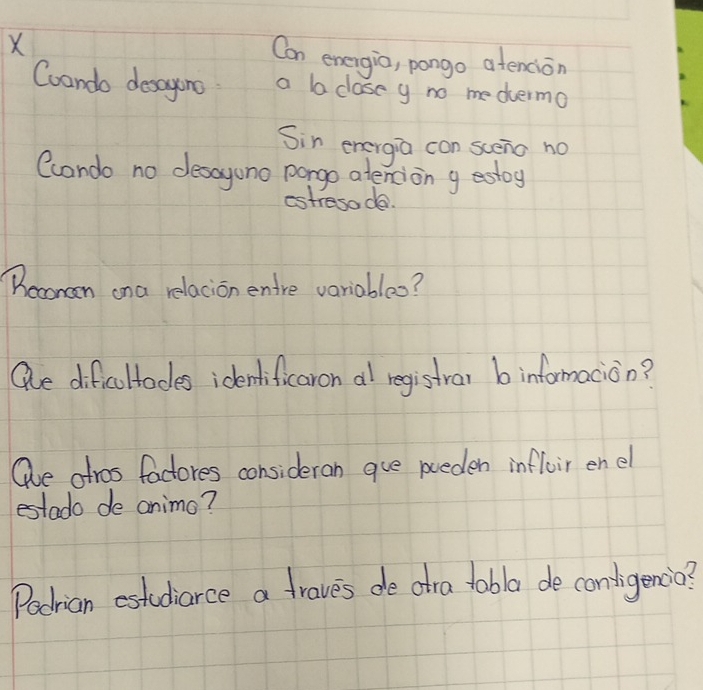 X
Con energia, pongo atención
Cuando desayuno a la clase y no me duermo
Sin energia con sueño no
Cuando no desayuno pongo atención y estoy
estresada.
Reconocen una relación entre variables?
Que dificultades identificaron al registrar la información?
Que otros factores consideran que pueden influir en el
estado de animo?
Podrian estudiarce a través de otra tabla de contigencia?